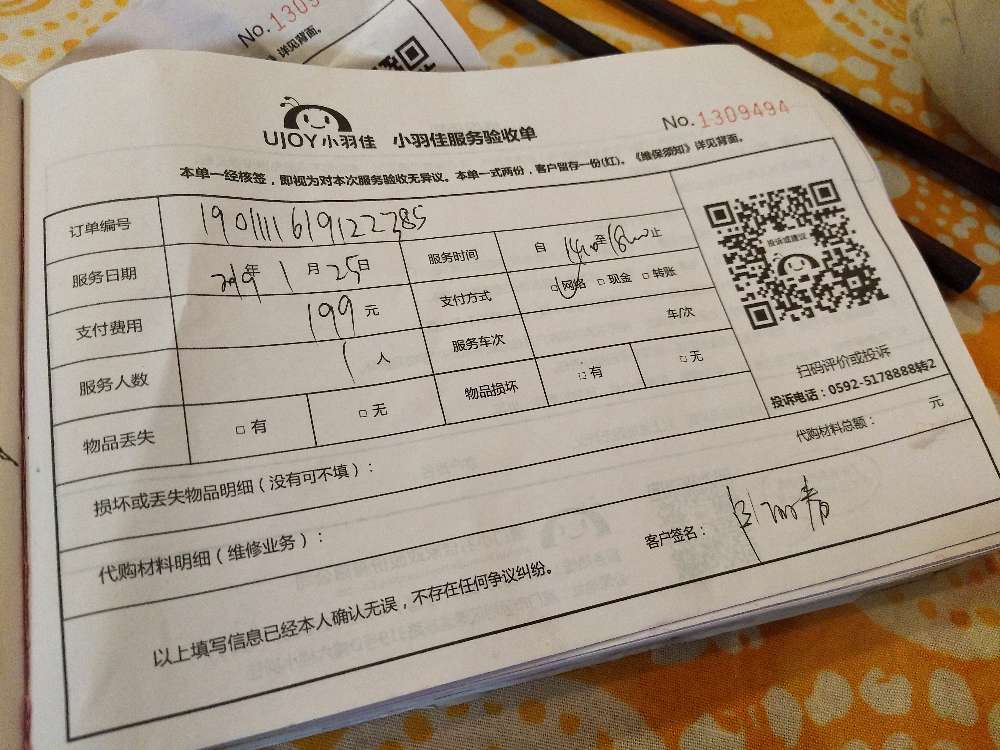 No.1309
详见背面。
UJOY小羽佳 小羽佳服务验收单 No.1309494
本单一经核签，即视为对本次服务验收无异议。本单一式两份，客户留存一份(红)。《维保须知》详见背面。
订单编号 1901111619122385
服务日期 2019年1月25日 服务时间 自 至 止
支付费用 199元 支付方式 □网络 □现金 □转账
服务人数 1人 服务车次 车/次
物品丢失 □有 □无 物品损坏 □有 □无
投诉或建议
扫码评价或投诉
投诉电话：0592-5178888转2
损坏或丢失物品明细（没有可不填）：
代购材料明细（维修业务）： 代购材料总额： 元
以上填写信息已经本人确认无误，不存在任何争议纠纷。 客户签名：